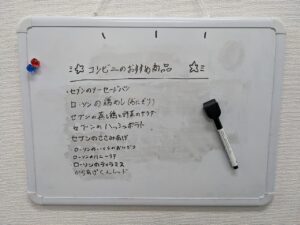 コンビニのおすすめ商品
・セブンのソーセージパン
ローソンの鶏めし(おにぎり)
セブンの蒸し鶏と野菜のサラダ
セブンのハッシュポテト
セブンのささみあげ
ローソンの
ローソンのハムチーズ
ローソンのティラミス
からあげくんレッド